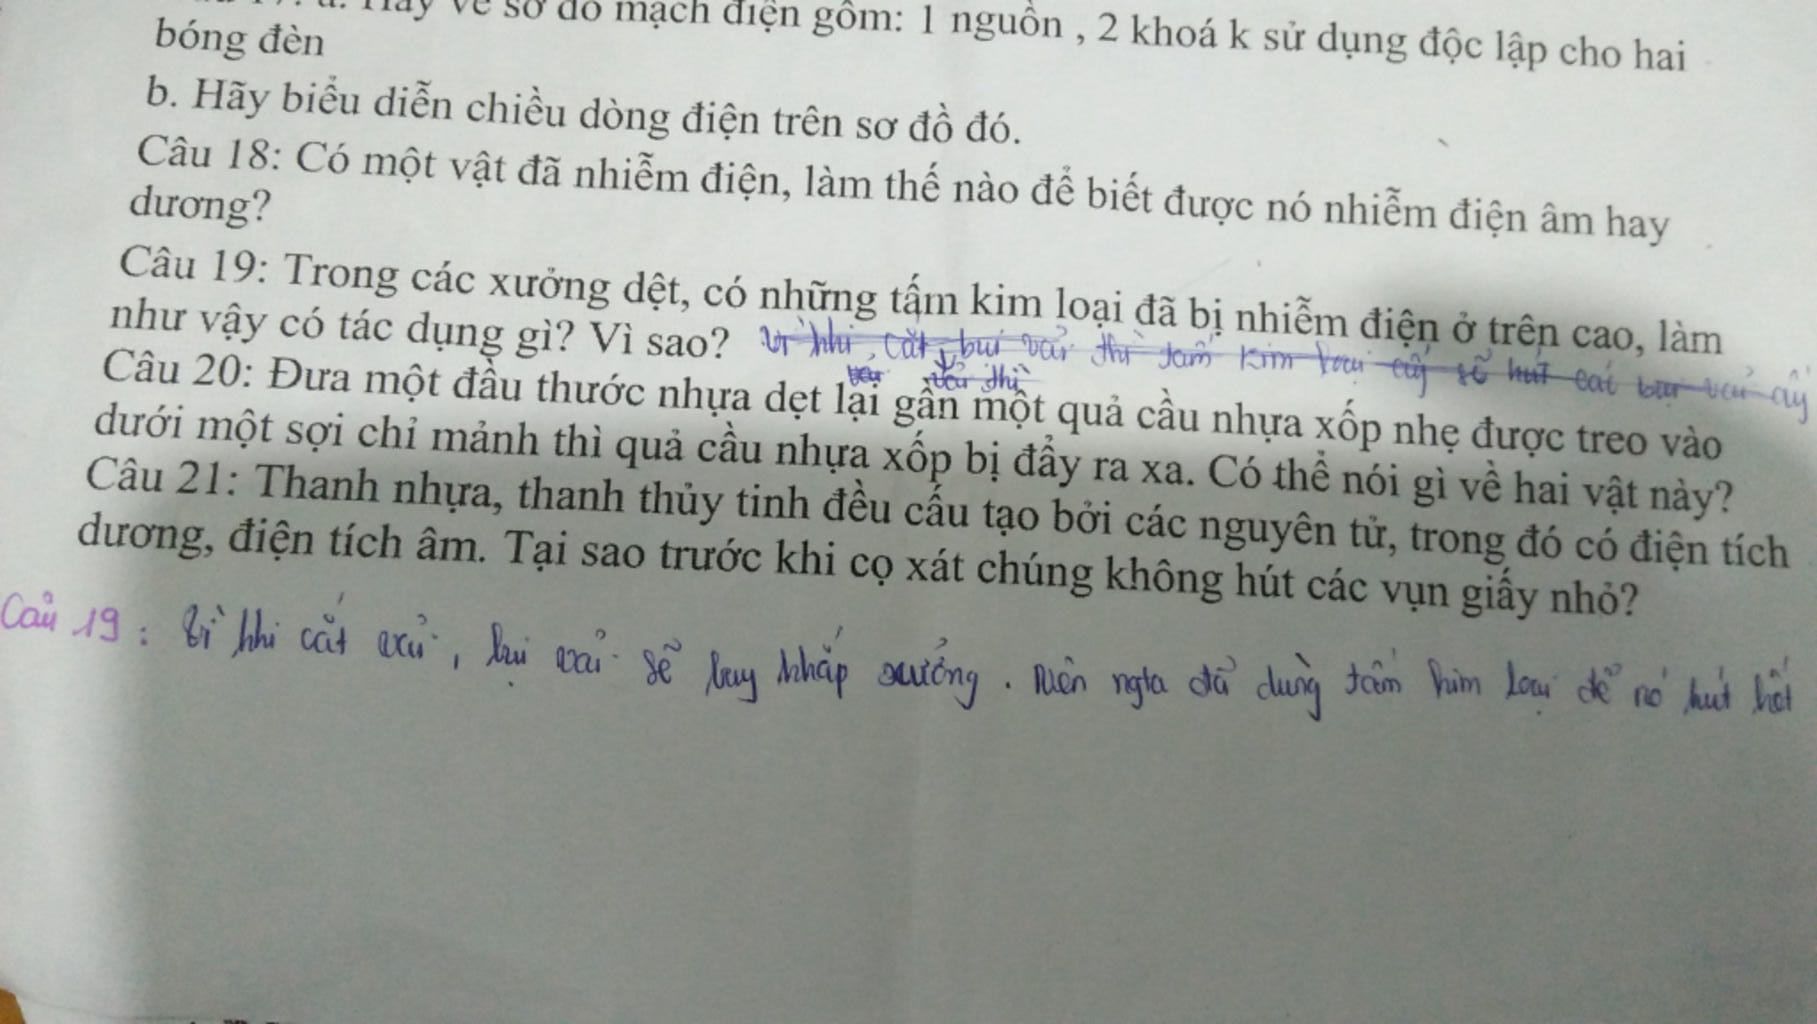 Hãy vẽ sơ đồ mạch điện gồm: 1 nguồn , 2 khoá k sử dụng độc lập cho hai
bóng đèn
b. Hãy biểu diễn chiều dòng điện trên sơ đồ đó.
Câu 18: Có một vật đã nhiễm điện, làm thế nào để biết được nó nhiễm điện âm hay
dương?
Câu 19: Trong các xưởng dệt, có những tấm kim loại đã bị nhiễm điện ở trên cao, làm
như vậy có tác dụng gì? Vì sao? Vì khi cắt, bụi vải thì tấm kim loại ấy sẽ hút các bụi vải ấy
Câu 20: Đưa một đầu thước nhựa dẹt lại gần một quả cầu nhựa xốp nhẹ được treo vào
dưới một sợi chỉ mảnh thì quả cầu nhựa xốp bị đẩy ra xa. Có thể nói gì về hai vật này?
Câu 21: Thanh nhựa, thanh thủy tinh đều cấu tạo bởi các nguyên tử, trong đó có điện tích
dương, điện tích âm. Tại sao trước khi cọ xát chúng không hút các vụn giấy nhỏ?
Câu 19: Vì khi cắt vải, bụi vải sẽ bay khắp xưởng. Nên ngta đã dùng tấm kim loại để nó hút hết